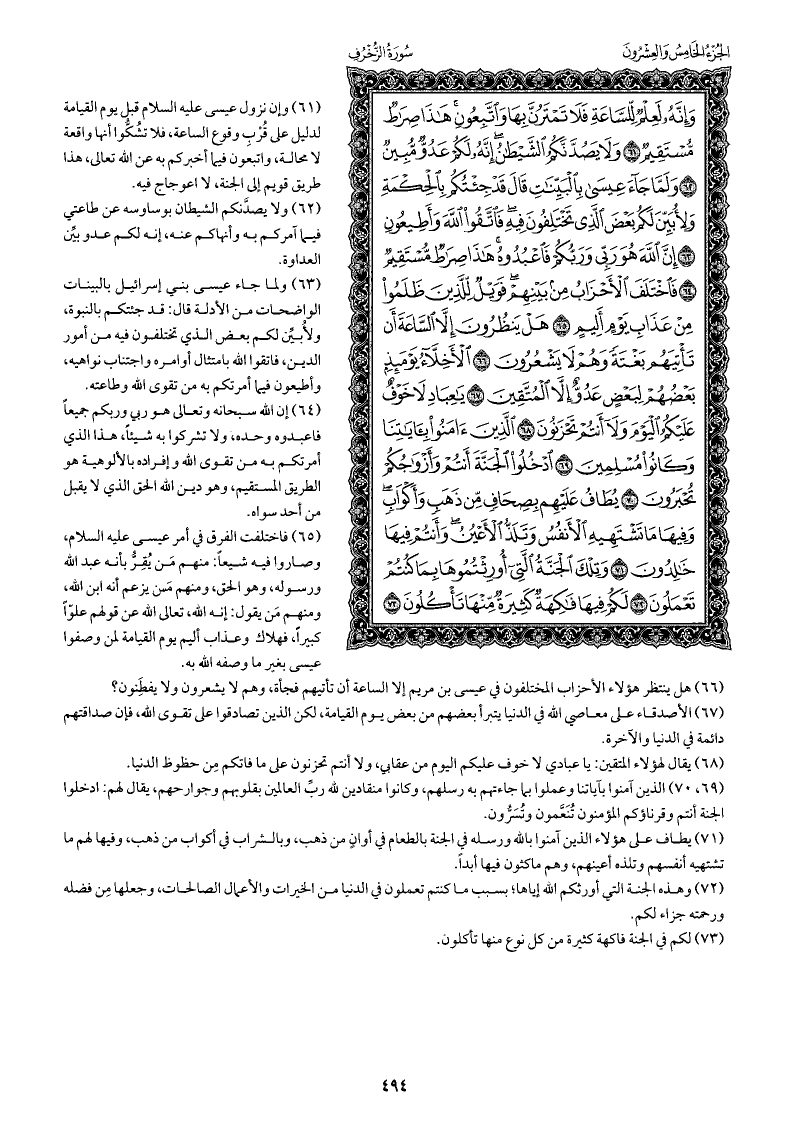 الجزء الخامس والعشرون
سورة الزخرف
وَإِنَّهُۥ لَعِلْمٌ لِّلسَّاعَةِ فَلَا تَمْتَرُنَّ بِهَا وَٱتَّبِعُونِ ۚ هَٰذَا صِرَٰطٌ
مُّسْتَقِيمٌ ٦١ وَلَا يَصُدَّنَّكُمُ ٱلشَّيْطَٰنُ ۖ إِنَّهُۥ لَكُمْ عَدُوٌّ مُّبِينٌ
٦٢ وَلَمَّا جَآءَ عِيسَىٰ بِٱلْبَيِّنَٰتِ قَالَ قَدْ جِئْتُكُم بِٱلْحِكْمَةِ
وَلِأُبَيِّنَ لَكُم بَعْضَ ٱلَّذِى تَخْتَلِفُونَ فِيهِ ۖ فَٱتَّقُوا۟ ٱللَّهَ وَأَطِيعُونِ
٦٣ إِنَّ ٱللَّهَ هُوَ رَبِّى وَرَبُّكُمْ فَٱعْبُدُوهُ ۚ هَٰذَا صِرَٰطٌ مُّسْتَقِيمٌ
٦٤ فَٱخْتَلَفَ ٱلْأَحْزَابُ مِنۢ بَيْنِهِمْ ۖ فَوَيْلٌ لِّلَّذِينَ ظَلَمُوا۟
مِنْ عَذَابِ يَوْمٍ أَلِيمٍ ٦٥ هَلْ يَنظُرُونَ إِلَّا ٱلسَّاعَةَ أَن
تَأْتِيَهُم بَغْتَةً وَهُمْ لَا يَشْعُرُونَ ٦٦ ٱلْأَخِلَّآءُ يَوْمَئِذٍۭ
بَعْضُهُمْ لِبَعْضٍ عَدُوٌّ إِلَّا ٱلْمُتَّقِينَ ٦٧ يَٰعِبَادِ لَا خَوْفٌ
عَلَيْكُمُ ٱلْيَوْمَ وَلَآ أَنتُمْ تَحْزَنُونَ ٦٨ ٱلَّذِينَ ءَامَنُوا۟ بِـَٔايَٰتِنَا
وَكَانُوا۟ مُسْلِمِينَ ٦٩ ٱدْخُلُوا۟ ٱلْجَنَّةَ أَنتُمْ وَأَزْوَٰجُكُمْ
تُحْبَرُونَ ٧٠ يُطَافُ عَلَيْهِم بِصِحَافٍ مِّن ذَهَبٍ وَأَكْوَابٍ ۖ
وَفِيهَا مَا تَشْتَهِيهِ ٱلْأَنفُسُ وَتَلَذُّ ٱلْأَعْيُنُ ۖ وَأَنتُمْ فِيهَا
خَٰلِدُونَ ٧١ وَتِلْكَ ٱلْجَنَّةُ ٱلَّتِىٓ أُورِثْتُمُوهَا بِمَا كُنتُمْ
تَعْمَلُونَ ٧٢ لَكُمْ فِيهَا فَٰكِهَةٌ كَثِيرَةٌ مِّنْهَا تَأْكُلُونَ ٧٣
(٦١) وإن نزول عيسى عليه السلام قبل يوم القيامة
لدليل على قُرْبِ وقوع الساعة، فلا تشُكُّوا أنها واقعة
لا محالة، واتبعون فيما أخبركم به عن الله تعالى، هذا
طريق قويم إلى الجنة، لا اعوجاج فيه.
(٦٢) ولا يصدَّنكم الشيطان بوساوسه عن طاعتي
فيما آمركم به وأنهاكم عنه، إنه لكم عدو بيِّن
العداوة.
(٦٣) ولما جاء عيسى بني إسرائيل بالبينات
الواضحات من الأدلة قال: قد جئتكم بالنبوة،
ولأُبيِّن لكم بعض الذي تختلفون فيه من أمور
الدين، فاتقوا الله بامتثال أوامره واجتناب نواهيه،
وأطيعون فيما أمرتكم به من تقوى الله وطاعته.
(٦٤) إن الله سبحانه وتعالى هو ربي وربكم جميعاً
فاعبدوه وحده، ولا تشركوا به شيئاً، هذا الذي
أمرتكم به من تقوى الله وإفراده بالألوهية هو
الطريق المستقيم، وهو دين الله الحق الذي لا يقبل
من أحد سواه.
(٦٥) فاختلفت الفرق في أمر عيسى عليه السلام،
وصاروا فيه شيعاً: منهم مَن يُقِرُّ بأنه عبد الله
ورسوله، وهو الحق، ومنهم مَن يزعم أنه ابن الله،
ومنهم مَن يقول: إنه الله، تعالى الله عن قولهم علوّاً
كبيراً، فهلاك وعذاب أليم يوم القيامة لمن وصفوا
عيسى بغير ما وصفه الله به.
(٦٦) هل ينتظر هؤلاء الأحزاب المختلفون في عيسى بن مريم إلا الساعة أن تأتيهم فجأة، وهم لا يشعرون ولا يفطِنون؟
(٦٧) الأصدقاء على معاصي الله في الدنيا يتبرأ بعضهم من بعض يوم القيامة، لكن الذين تصادقوا على تقوى الله، فإن صداقتهم
دائمة في الدنيا والآخرة.
(٦٨) يقال لهؤلاء المتقين: يا عبادي لا خوف عليكم اليوم من عقابي، ولا أنتم تحزنون على ما فاتكم مِن حظوظ الدنيا.
(٦٩، ٧٠) الذين آمنوا بآياتنا وعملوا بما جاءتهم به رسلهم، وكانوا منقادين لله ربِّ العالمين بقلوبهم وجوارحهم، يقال لهم: ادخلوا
الجنة أنتم وقرناؤكم المؤمنون تُنَعَّمون وتُسَرُّون.
(٧١) يطاف على هؤلاء الذين آمنوا بالله ورسله في الجنة بالطعام في أوانٍ من ذهب، وبالشراب في أكواب من ذهب، وفيها لهم ما
تشتهيه أنفسهم وتلذه أعينهم، وهم ماكثون فيها أبداً.
(٧٢) وهذه الجنة التي أورثكم الله إياها؛ بسبب ما كنتم تعملون في الدنيا من الخيرات والأعمال الصالحات، وجعلها مِن فضله
ورحمته جزاء لكم.
(٧٣) لكم في الجنة فاكهة كثيرة من كل نوع منها تأكلون.
٤٩٤